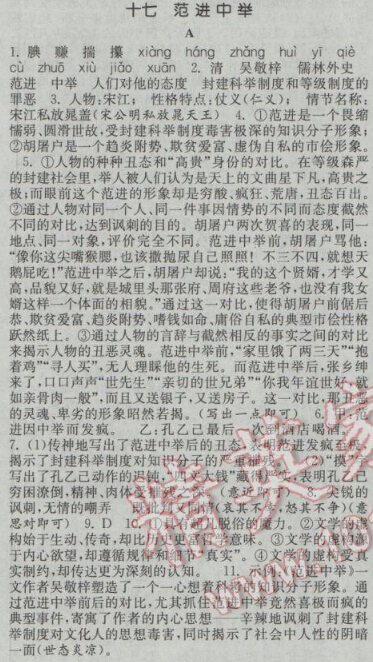 十七 范进中举
A
1. 腆 赚 揣 攥 xiàng háng zhǎng huì yī qiè
cù zhuō xiù jiǎo xuān 2. 清 吴敬梓 儒林外史
范进 中举 人们对他的态度 封建科举制度和等级制度的
罪恶 3. 人物:宋江; 性格特点:仗义(仁义); 情节名称:
宋江私放晁盖(宋公明私放晁天王) 4. ①范进是一个畏缩
懦弱、圆滑世故,受封建科举制度毒害极深的知识分子形象;
②胡屠户是一个趋炎附势、欺贫爱富、虚伪自私的市侩形象。
5. ①人物的种种丑态和“高贵”身份的对比。在等级森严
的封建社会里,举人被人们认为是天上的文曲星下凡,高贵之
极;而眼前这个范进的形象却是穷酸、疯狂、荒唐,丑态百出。
②通过人物对同一个人、同一件事因情势的不同而态度截然
不同的对比,达到讽刺的目的。胡屠户两次贺喜的表现,同一
地点、同一对象,评价完全不同。范进中举前,胡屠户骂他:
“像你这尖嘴猴腮,也该撒抛尿自己照照!不三不四,就想天
鹅屁吃!”范进中举之后,胡屠户却说:“我的这个贤婿,才学又
高,品貌又好,就是城里头那张府、周府这些老爷,也没有我女
婿这样一个体面的相貌。”通过这一对比,使得胡屠户前倨后
恭、欺贫爱富、趋炎附势、嗜钱如命、庸俗自私的典型市侩性格
跃然纸上。③通过人物的言辞与截然相反的事实之间的对比
来揭示人物的丑恶灵魂。范进中举前,“家里饿了两三天”“抱
着鸡”“寻人买”,无人理睬他的生死。而范进中举后,张乡绅
来了,口口声声“世先生”“亲切的世兄弟”“你我年谊世好,就
如亲骨肉一般”,而且又送银子,又送房子。这一对比,那丑恶
的灵魂、卑劣的形象昭然若揭。(写出一点即可) 6. 甲:范
进因中举而发疯。 乙:孔乙己最后一次到酒店喝酒。
7. (1)传神地写出了范进中举后的丑态,表明范进发疯至极,
揭示了封建科举制度对知识分子的严重摧残。 (2)“摸”
写出了孔乙己动作的迟钝,“四文大钱”藏得严实,表明孔乙己
穷困潦倒,精神、肉体 (意近即可) 8. 尖锐的
讽刺,无情的嘲弄 (哀其不幸,怒其不争)(意
思对即可) 9. D 10. ①具有超凡脱俗的魔力。②文学的虚
构始于生动、传奇,却比历史更富哲学意味。③文学的虚构源
于内心欲望,却遵循规律和细节“真实”。④文学的虚构受真
实制约,却传达更为深刻的认知。 11. 示例:《范进中举》一
文作者吴敬梓塑造了一个一心想着科举的知识分子形象。通
过范进中举前后的对比,尤其抓住范进中举竟然喜极而疯的
典型事件,寄寓了作者的内心思想——辛辣地讽刺了封建科
举制度对文化人的思想毒害,同时揭示了社会中人性的阴暗
一面(世态炎凉)。